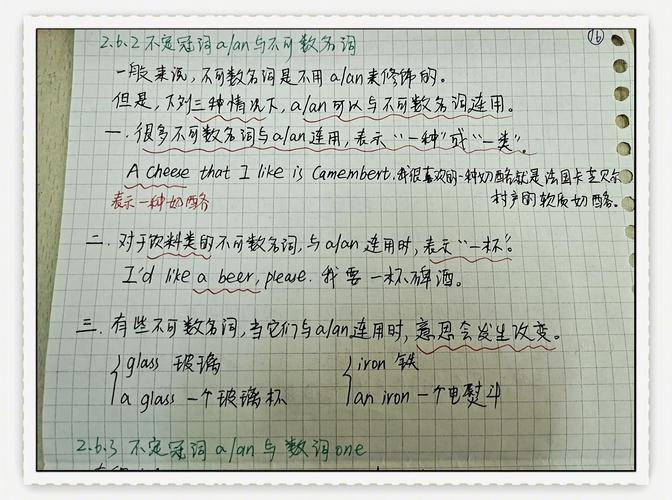 2.6.2 不定冠词 a/an 与不可数名词
16
一般来说，不可数名词是不用 a/an 来修饰的。
但是，下列三种情况下，a/an 可以与不可数名词连用。
一. 很多不可数名词与 a/an 连用，表示“一种”或“一类”。
A cheese that I like is Camembert. 我很喜欢的一种奶酪就是法国卡芒贝尔
表示一种奶酪
村产的软质奶酪。
二. 对于饮料类的不可数名词，与 a/an 连用时，表示“一杯”。
I'd like a beer, please. 我要一杯啤酒。
三. 有些不可数名词，当它们与 a/an 连用时，意思会发生改变。
glass 玻璃
a glass 一个玻璃杯
iron 铁
an iron 一个电熨斗
2.6.3 不定冠词 a/an 与数词 one